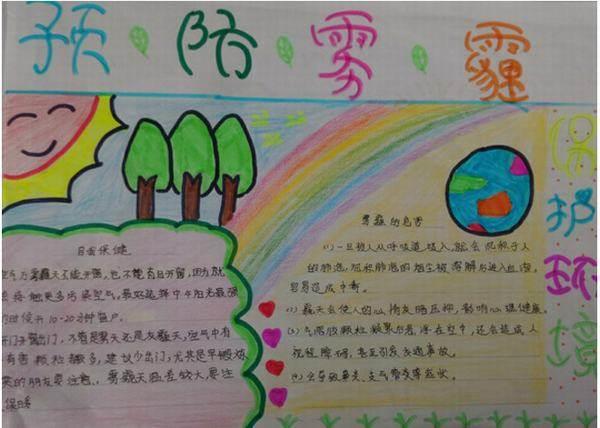 预防雾霾
保护环境
自我保健
空气为雾霾天不能开窗,也不能盲目开窗,因为就
会将他更多污染空气,最好选择中午阳光最强
的时候开10-20分钟窗户。
开门开窗出门,不管是雾天还是灰霾天,空气中有
有害颗粒都多,建议少出门,尤其是早晨锻
炼的朋友要注意。雾霾天温差较大,要注
保暖
雾霾的危害
(1)一旦被人从呼吸道吸入,就会沉积于人
的肺泡,沉积肺泡的烟尘被溶解后进入血液,
容易造成中毒。
(2)霾天会使人的心情灰暗压抑,影响心理健康。
(3)气溶胶颗粒凝聚后者浮在空中,还会造成人
视程障碍,甚至引发交通事故。
(4)会导致鼻炎、支气管炎等症状。